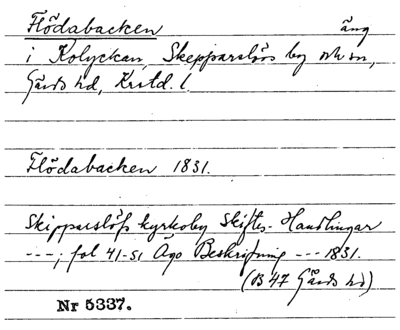 Flödabacken äng
i Kolyckan, Skepparslövs by och sn,
Gärds hd, Krstd. l.
Flödabacken 1831.
Skipparslöfs kyrkoby Skiftes-Handlingar
---; fol 41-51 Ägo Beskrifning --- 1831.
(B 47 Gärds hd)
Nr 5337.